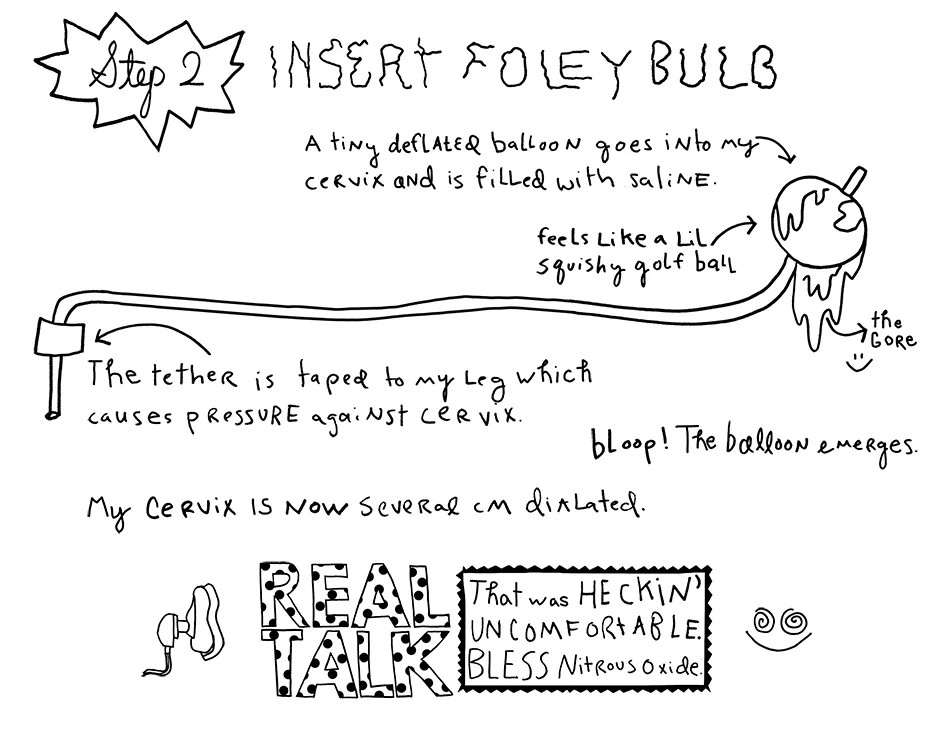 Step 2
INSERT FOLEY BULB
A tiny deflated balloon goes into my
cervix and is filled with saline.
feels like a lil
squishy golf ball
the
GORE
The tether is taped to my leg which
causes pressure against cervix.
bloop! The balloon emerges.
My cervix is now several cm dialated.
REAL
TALK
That was HECKIN'
UNCOMFORTABLE.
BLESS Nitrous Oxide.